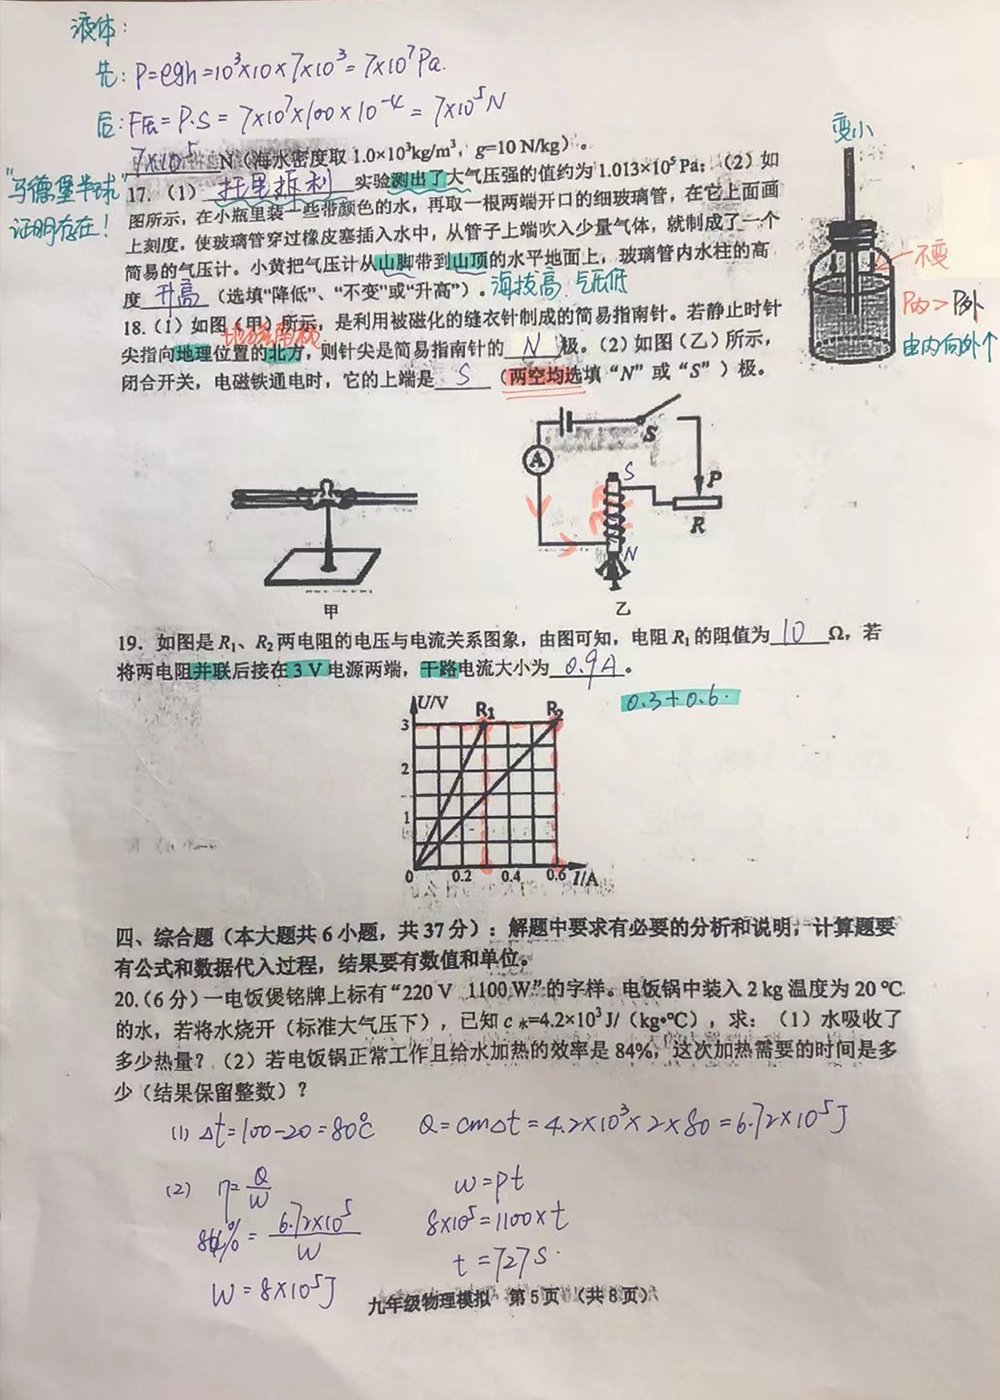 液体：
先：P=ρgh=10³×10×7×10³=7×10⁷Pa.
后：F压=P·S=7×10⁷×100×10⁻⁴=7×10⁵N
7×10⁵ N（海水密度取 1.0×10³kg/m³，g=10 N/kg）。
"马德堡半球"
证明存在！
17.（1）托里拆利实验测出了大气压强的值约为 1.013×10⁵ Pa；（2）如
图所示，在小瓶里装一些带颜色的水，再取一根两端开口的细玻璃管，在它上面画
上刻度，使玻璃管穿过橡皮塞插入水中，从管子上端吹入少量气体，就制成了一个
简易的气压计。小黄把气压计从山脚带到山顶的水平地面上，玻璃管内水柱的高
度 升高 （选填“降低”、“不变”或“升高”）。海拔高 气压低
变小
不变
P内>P外
由内向外个
18.（1）如图（甲）所示，是利用被磁化的缝衣针制成的简易指南针。若静止时针
尖指向地理位置的北方，则针尖是简易指南针的 N 极。（2）如图（乙）所示，
闭合开关，电磁铁通电时，它的上端是 S （两空均选填“N”或“S”）极。
S
A
S
P
R
N
甲
乙
19．如图是 R₁、R₂ 两电阻的电压与电流关系图象，由图可知，电阻 R₁ 的阻值为 10 Ω，若
将两电阻并联后接在 3 V 电源两端，干路电流大小为 0.9A 。
0.3+0.6.
U/V R₁ R₂
3
2
1
0 0.2 0.4 0.6 I/A
四、综合题（本大题共 6 小题，共 37 分）：解题中要求有必要的分析和说明，计算题要
有公式和数据代入过程，结果要有数值和单位。
20.（6 分）一电饭煲铭牌上标有“220 V 1100 W”的字样。电饭锅中装入 2 kg 温度为 20 ℃
的水，若将水烧开（标准大气压下），已知 c水=4.2×10³ J/（kg•℃），求：（1）水吸收了
多少热量？（2）若电饭锅正常工作且给水加热的效率是 84%，这次加热需要的时间是多
少（结果保留整数）？
(1) Δt=100-20=80℃ Q=cmΔt=4.2×10³×2×80=6.72×10⁵J
(2) η=Q/W W=Pt
84%=6.72×10⁵/W 8×10⁵=1100×t
W=8×10⁵J t=727S.
九年级物理模拟 第 5 页 （共 8 页）